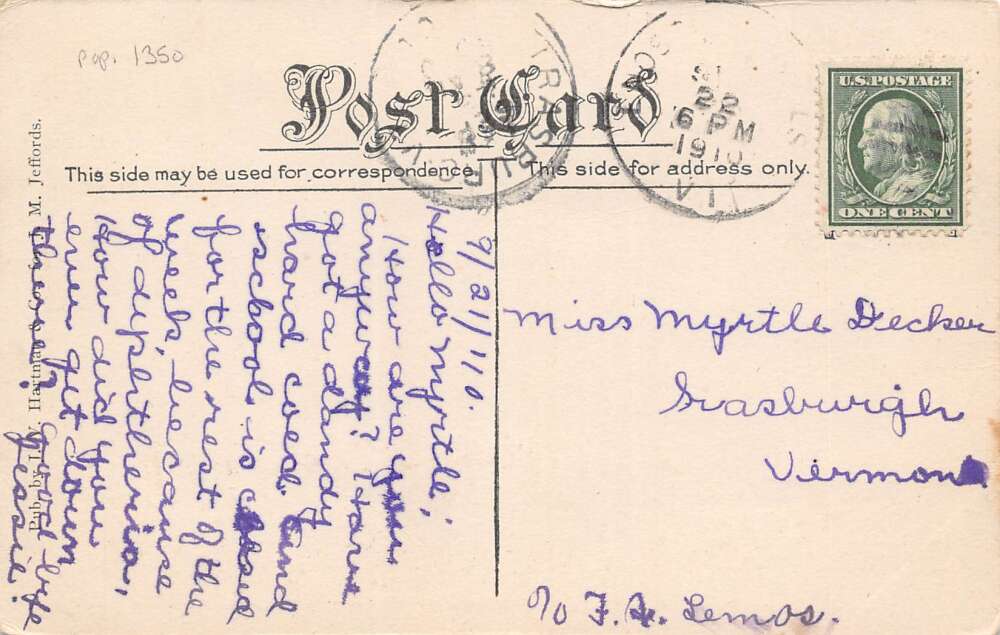 pop. 1350
Post Card
This side may be used for correspondence.
This side for address only.
U.S. POSTAGE
ONE CENT
22
6 PM
1910
VT.
9/21/10.
Hello Myrtle;
How are you
anyway? Have
got a dandy
hard cold. And
school is closed
for the rest of the
week, because
of diphtheria,
How did you
ever get down
there?
Good-bye
Jessie.
Miss Myrtle Decker
Irasburgh
Vermont
c/o F. H. Lemos.
Pub. by I. W. Hartman & Co. for M. Jeffords.